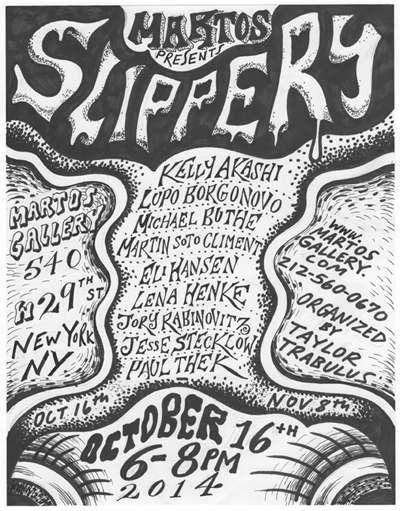 MARTOS
PRESENTS
SLIPPERY
KELLY AKASHI
LUPO BORGONOVO
MICHAEL BUTHE
MARTIN SOTO CLIMENT
ELI HANSEN
LENA HENKE
JORY RABINOVITZ
JESSE STECKLOW
PAUL THEK
MARTOS
GALLERY
540
W 29TH ST
NEW YORK
NY
WWW.
MARTOS
GALLERY
.COM
212-560-0670
ORGANIZED
BY
TAYLOR
TRABULUS
OCT 16TH
NOV
OCTOBER 16TH
6-8PM
2014